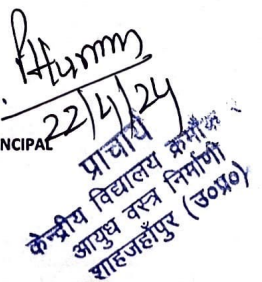 22/4/24
NCIPAL
प्राचार्य
केन्द्रीय विद्यालय क्रमांक
आयुध वस्त्र निर्माणी
शाहजहाँपुर (उ०प्र०)